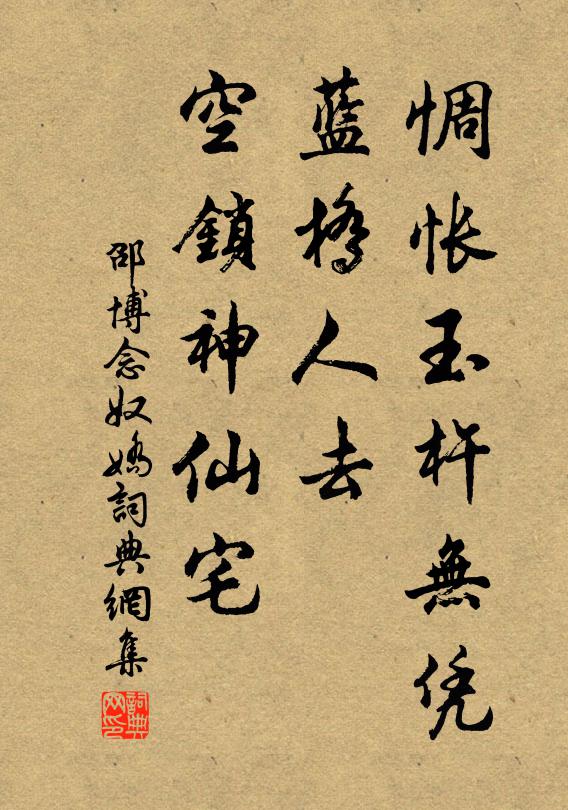 惆悵玉杵無凭
藍橋人去
空鎖神仙宅
邵博念奴嬌詞典網集
詞典网印